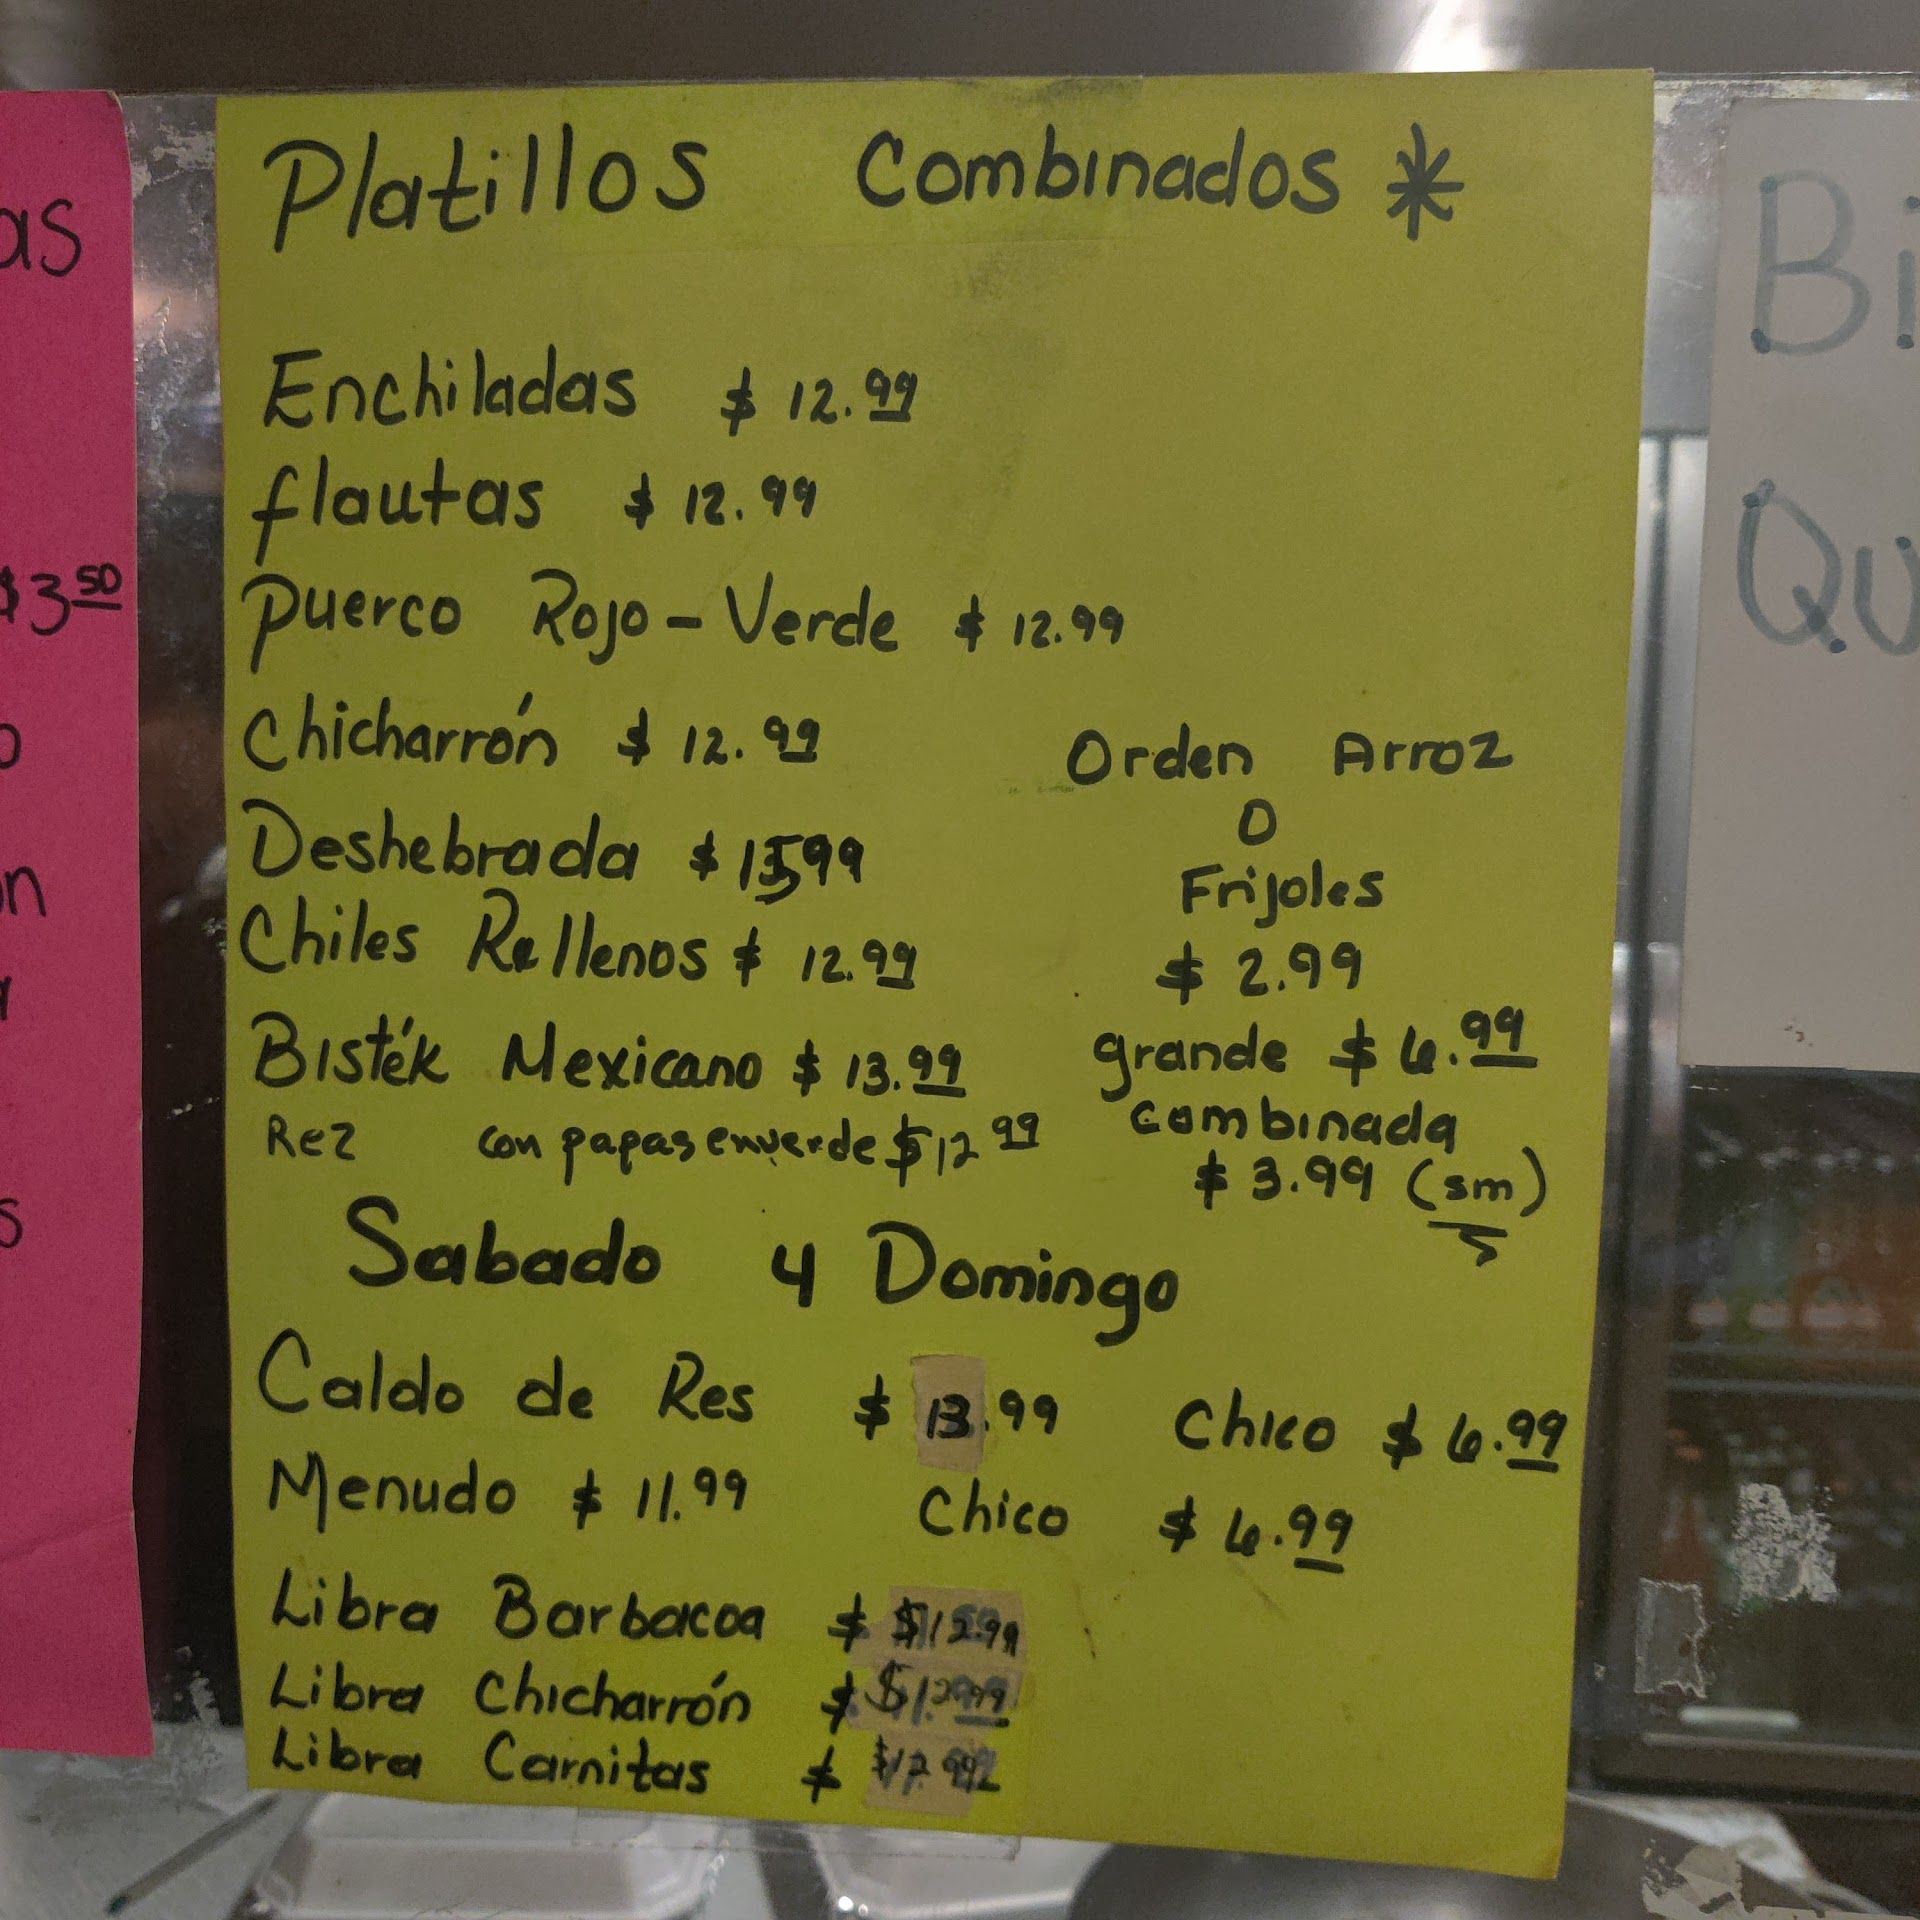 Platillos Combinados *
Enchiladas $ 12.99
flautas $ 12.99
Puerco Rojo - Verde $ 12.99
Chicharrón $ 12.99
Deshebrada $
Chiles Rellenos $ 12.99
Bisték Mexicano $ 13.99
Rez con papas en verde $12 99
Orden Arroz
O
Frijoles
$ 2.99
grande $ 6.99
combinada
$ 3.99 (sm)
Sabado y Domingo
Caldo de Res $ 13.99 Chico $ 6.99
Menudo $ 11.99 Chico $ 6.99
Libra Barbacoa $ $12.99
Libra Chicharrón $ $12.99
Libra Carnitas $ $12.99
as
$3 50
o
on
s
Bi
Qu